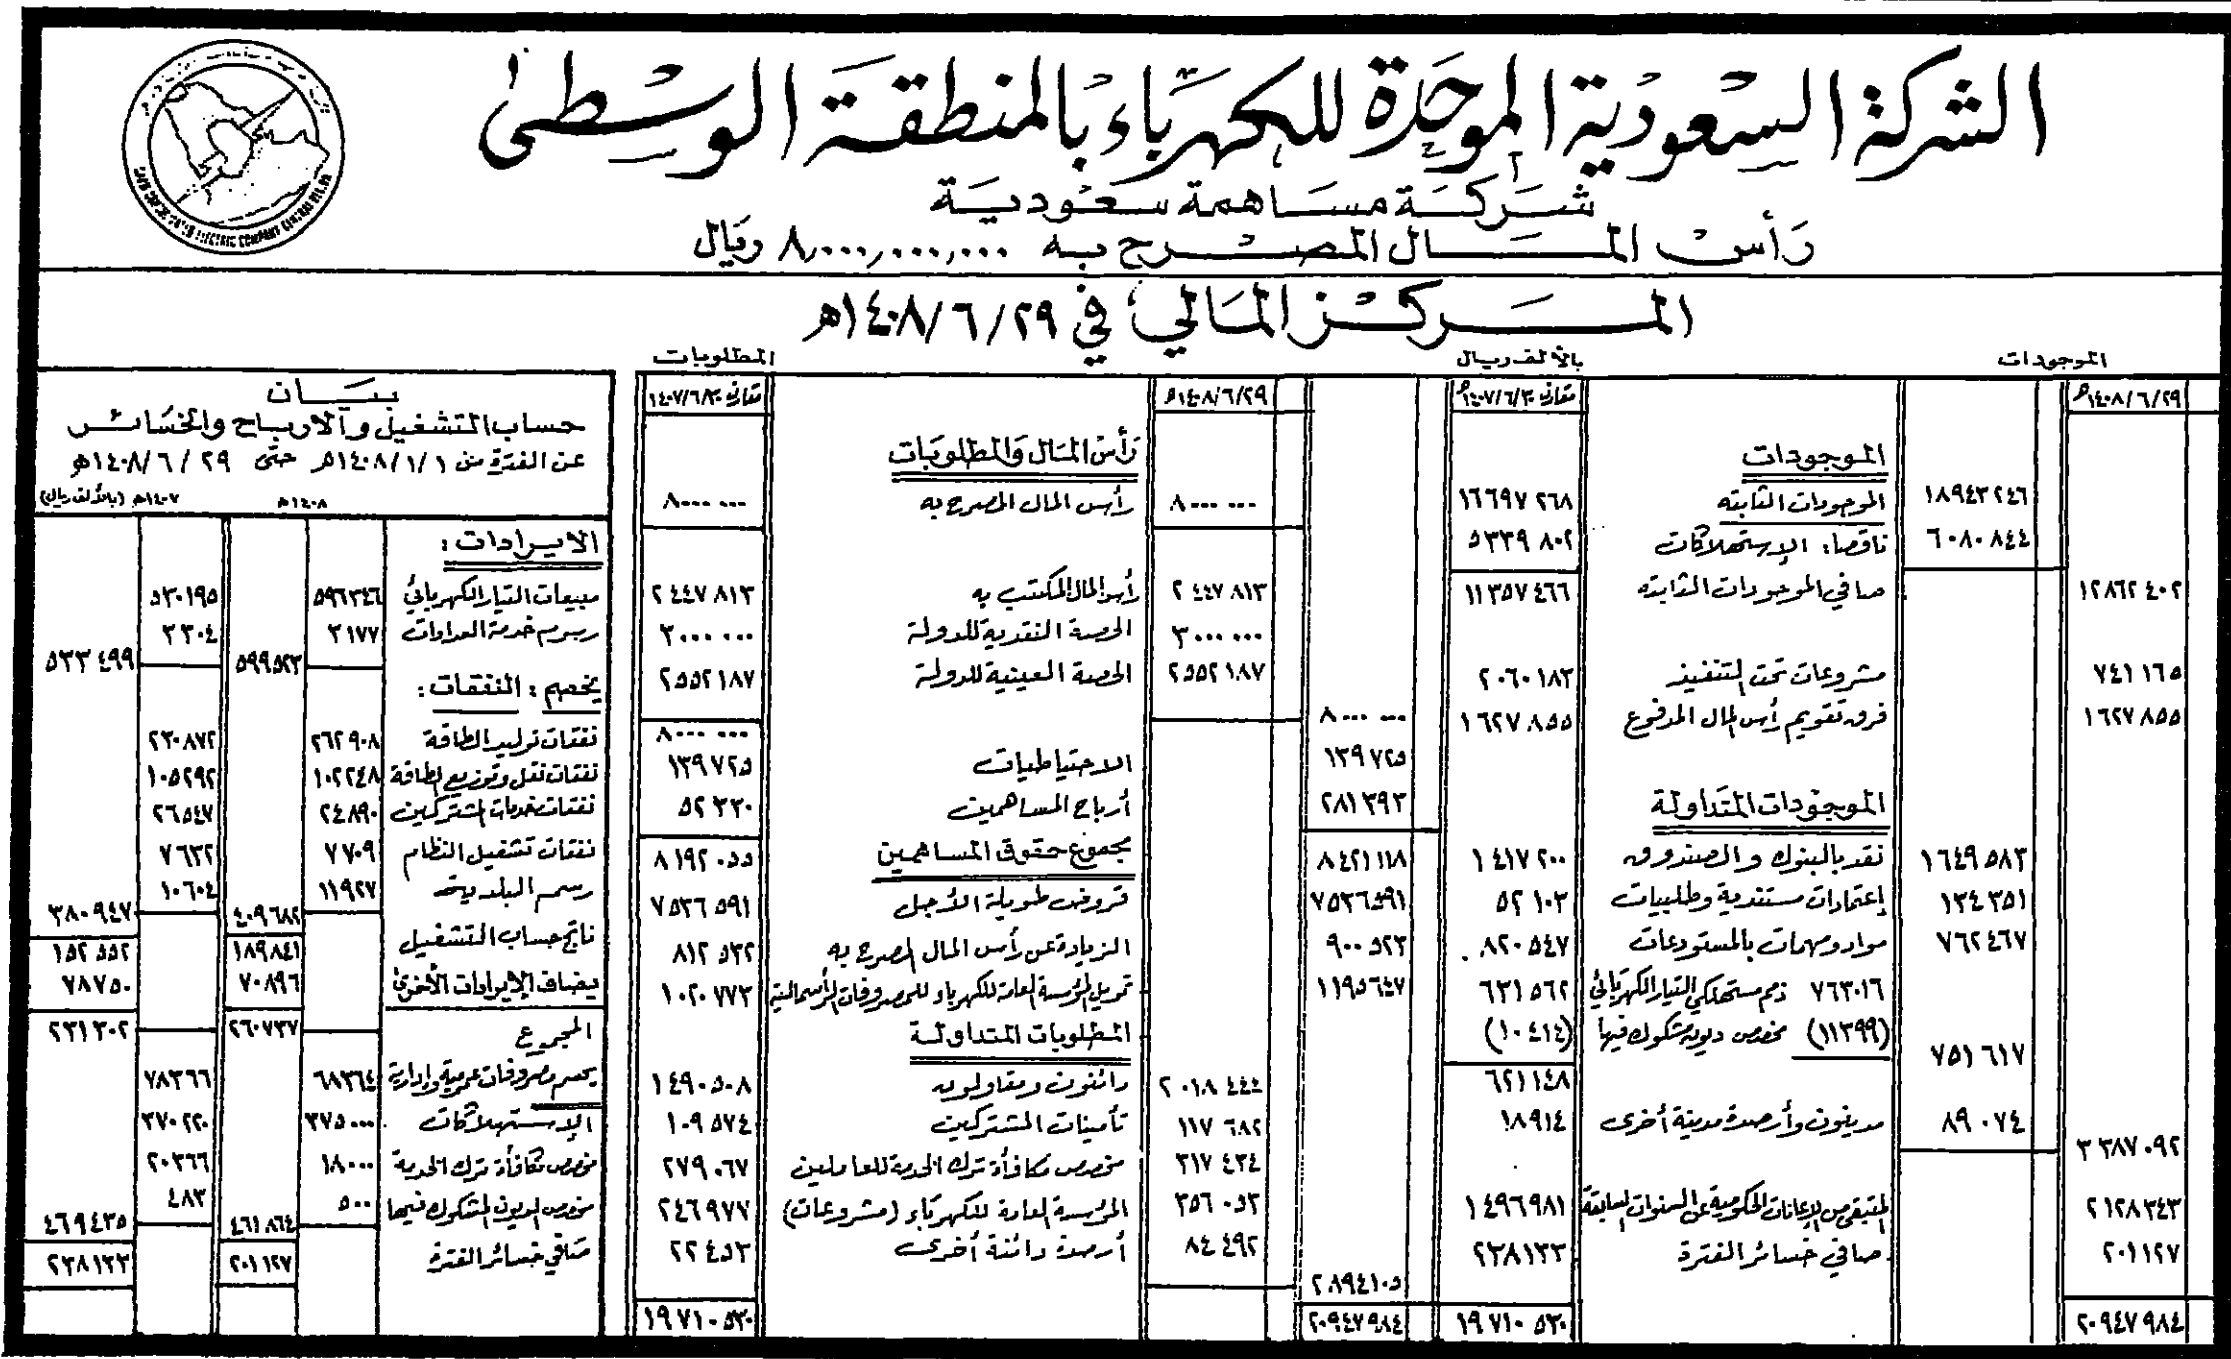 الشركة السعودية الموحدة للكهرباء بالمنطقة الوسطى
شركة مساهمة سعودية
رأس المال المصرح به ٨,٠٠٠,٠٠٠,٠٠٠ ريال
المركز المالي في ٢٩/٦/١٤٠٨هـ
الموجودات
بالألف ريال
١٤٠٨/٦/٢٩هـ
مقارنه ١٤٠٧/٦/٣٠هـ
الموجودات
١٨٩٤٣٢٤٦ الموجودات الثابته ١٦٦٩٧٢٦٨
٦٠٨٠٨٤٤ ناقصا: الإستهلاكات ٥٣٣٩٨٠٢
١٢٨٦٢٤٠٢ صافي الموجودات الثابته ١١٣٥٧٤٦٦
٧٤١١٦٥ مشروعات تحت التنفيذ ٢٠٦٠١٨٣
١٦٢٧٨٥٥ فرق تقويم رأس المال المدفوع ١٦٢٧٨٥٥
الموجودات المتداولة
١٦٤٩٥٨٣ نقد بالبنوك والصندوق ١٤١٧٢٠٠
١٣٤٣٥١ إعتمادات مستندية وطلبيات ٥٢١٠٣
٧٦٢٤٦٧ مواد ومهمات بالمستودعات ٨٢٠٥٤٧
٧٦٣٠١٦ ذمم مستهلكي التيار الكهربائي ٦٣١٥٦٢
(١١٣٩٩) مخصص ديون مشكوك فيها (١٠٤١٤)
٧٥١٦١٧ ٦٢١١٤٨
٨٩٠٧٤ مدينون وأرصدة مدينة أخرى ١٨٩١٤
٣٣٨٧٠٩٢
٢١٢٨٣٤٣ المتبقي من الإعانات الحكومية عن السنوات السابقة ١٤٩٦٩٨١
٢٠١١٢٧ صافي خسائر الفترة ٢٣٨١٣٣
٢٠٩٤٧٩٨٤ ١٩٧١٠٥٣٠
المطلوبات
١٤٠٨/٦/٢٩هـ
مقارنه ١٤٠٧/٦/٣٠
رأس المال والمطلوبات
٨٠٠٠٠٠٠ رأس المال المصرح به ٨٠٠٠٠٠٠
٢٤٤٧٨١٣ رأس المال المكتتب به ٢٤٤٧٨١٣
٣٠٠٠٠٠٠ الحصة النقدية للدولة ٣٠٠٠٠٠٠
٢٥٥٢١٨٧ الحصة العينية للدولة ٢٥٥٢١٨٧
٨٠٠٠٠٠٠ ٨٠٠٠٠٠٠
١٣٩٧٢٥ الاحتياطيات ١٣٩٧٢٥
٢٨١٣٩٣ أرباح المساهمين ٥٢٣٣٠
٨٤٢١١١٨ مجموع حقوق المساهمين ٨١٩٢٠٥٥
٧٥٣٦٥٩١ قروض طويلة الأجل ٧٥٣٦٥٩١
٩٠٠٥٢٣ الزيادة عن رأس المال المصرح به ٨١٢٥٣٢
١١٩٥٦٤٧ تمويل المؤسسة العامة للكهرباء للمصروفات الرأسمالية ١٠٢٠٧٧٣
المطلوبات المتداولة
٢٠١٨٤٤٤ دائنون ومقاولون ١٤٩٠٥٠٨
١١٧٦٨٢ تأمينات المشتركين ١٠٩٥٧٤
٣١٧٤٣٤ مخصص مكافأة ترك الخدمة للعاملين ٢٧٩٠٦٧
٣٥٦٠٥٣ المؤسسة العامة للكهرباء (مشروعات) ٢٤٦٩٧٧
٨٤٤٩٢ أرصدة دائنة أخرى ٢٢٤٥٣
٢٨٩٤١٠٥
٢٠٩٤٧٩٨٤ ١٩٧١٠٥٣٠
بيان
حساب التشغيل والأرباح والخسائر
عن الفترة من ١٤٠٨/١/١هـ حتى ١٤٠٨/٦/٢٩هـ
١٤٠٨هـ ١٤٠٧هـ (بالألف ريال)
الايرادات:
مبيعات التيار الكهربائي ٥٩٦٣٤٦ ٥٣٠١٩٥
رسوم خدمة العدادات ٣١٧٧ ٣٣٠٤
٥٩٩٥٢٣ ٥٣٣٤٩٩
يخصم: النفقات:
نفقات توليد الطاقة ٢٦٢٩٠٨ ٢٣٠٨٧٢
نفقات نقل وتوزيع الطاقة ١٠٢٢٤٨ ١٠٥٢٩٢
نفقات خدمات المشتركين ٢٤٨٩٠ ٢٦٥٤٧
نفقات تشغيل النظام ٧٧٠٩ ٧٦٣٢
رسم البلديه ١١٩٢٧ ١٠٦٠٤
٤٠٩٦٨٢ ٣٨٠٩٤٧
ناتج حساب التشغيل ١٨٩٨٤١ ١٥٢٥٥٢
يضاف الإيرادات الأخرى ٧٠٨٩٦ ٧٨٧٥٠
المجموع ٢٦٠٧٣٧ ٢٣١٣٠٢
يخصم مصروفات عمومية وإدارية ٦٨٣٦٤ ٧٨٣٦٦
الإستهلاكات ٣٧٥٠٠٠ ٣٧٠٢٢٠
مخصص مكافأة ترك الخدمة ١٨٠٠٠ ٢٠٣٦٦
مخصص الديون المشكوك فيها ٥٠٠ ٤٨٣
٤٦١٨٦٤ ٤٦٩٤٣٥
صافي خسائر الفترة ٢٠١١٢٧ ٢٣٨١٣٣